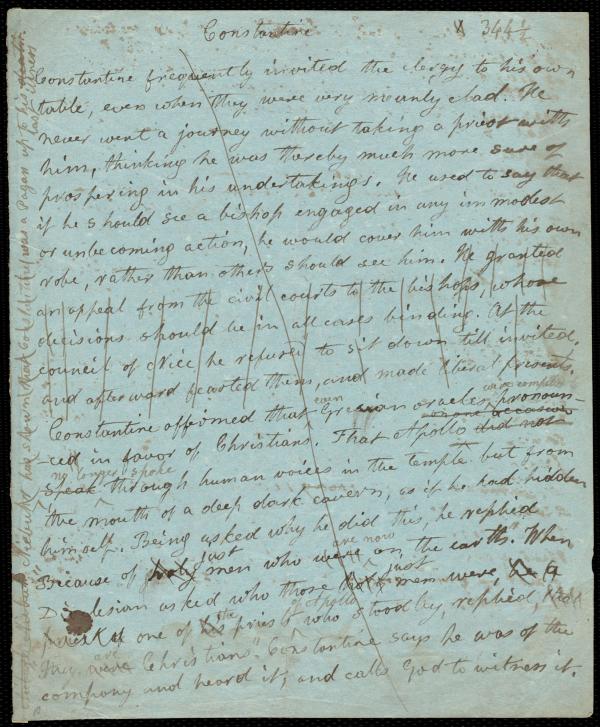 Constantine X 344½
Constantine frequently invited the clergy to his own
table, even when they were very meanly clad. He
never went a journey without taking a priest with
him, thinking he was thereby much more sure of
prospering in his undertakings. He used to say that
if he should see a bishop engaged in any immodest
or unbecoming action, he would cover him with his own
robe, rather than others should see him. He granted
an appeal from the civil courts to the bishops, whose
decisions should be in all cases binding. At the
council of Nice he refused to sit down till invited,
and afterward feasted them, and made liberal presents.
even were compelled
Constantine affirmed that Grecian oracles pronoun-
on one occasion
ced in favor of Christians. That Apollo did not
no longer spoke
speak through human voices in the temple but from
the mouth of a deep dark cavern, as if he had hidden
himself. Being asked why he did this, he replied
just are now
Because of holy men who were on the earth." When
just
D lesian asked who those men were, he a
the of Apollo
priest of one of his priests who stood by, replied,
are
they were Christians." Constantine says he was of the
company and heard it, and calls God to witness it.
shown that Constantine was a Pagan up to his
last illness